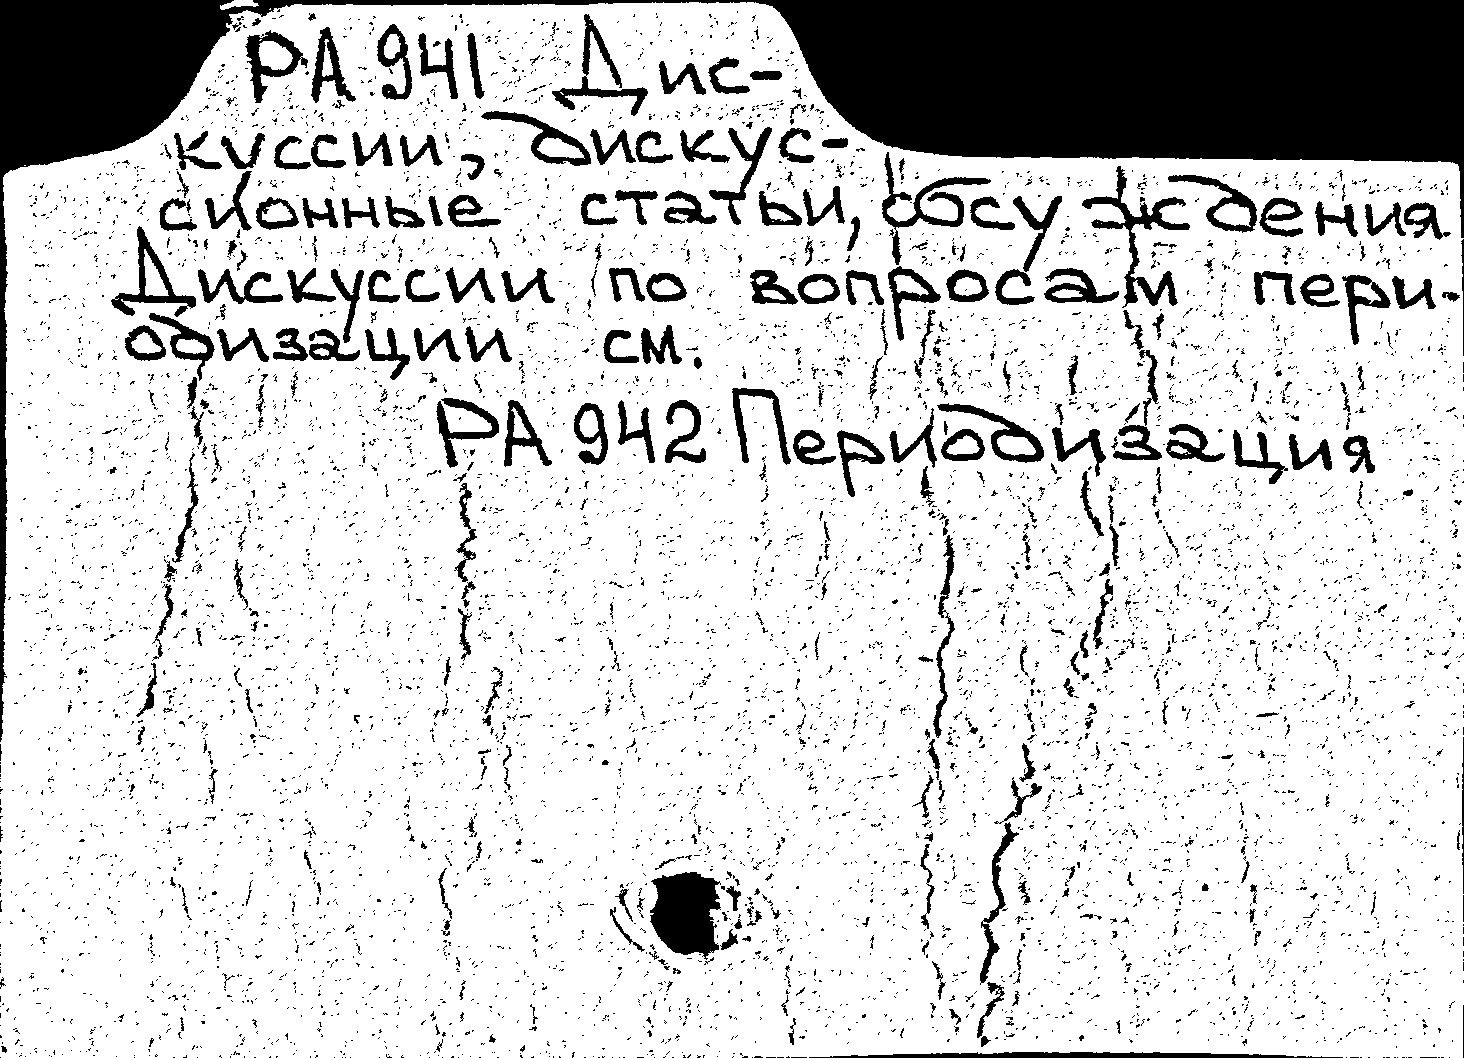 РА 941 Дис-
куссии, дискус-
сионные статьи, обсуждения
Дискуссии по вопросам пери-
одизации см.
РА 942 Периодизация